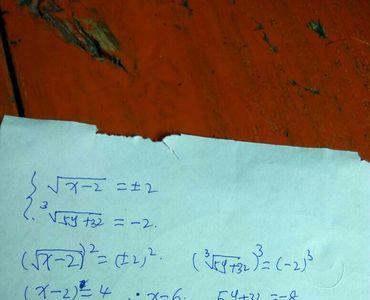 { √(x-2) = ±2
∛(5y+32) = -2.
(√(x-2))² = (±2)². (∛(5y+32))³ = (-2)³
(x-2) = 4 ∴ x=6. 5y+32 = -8